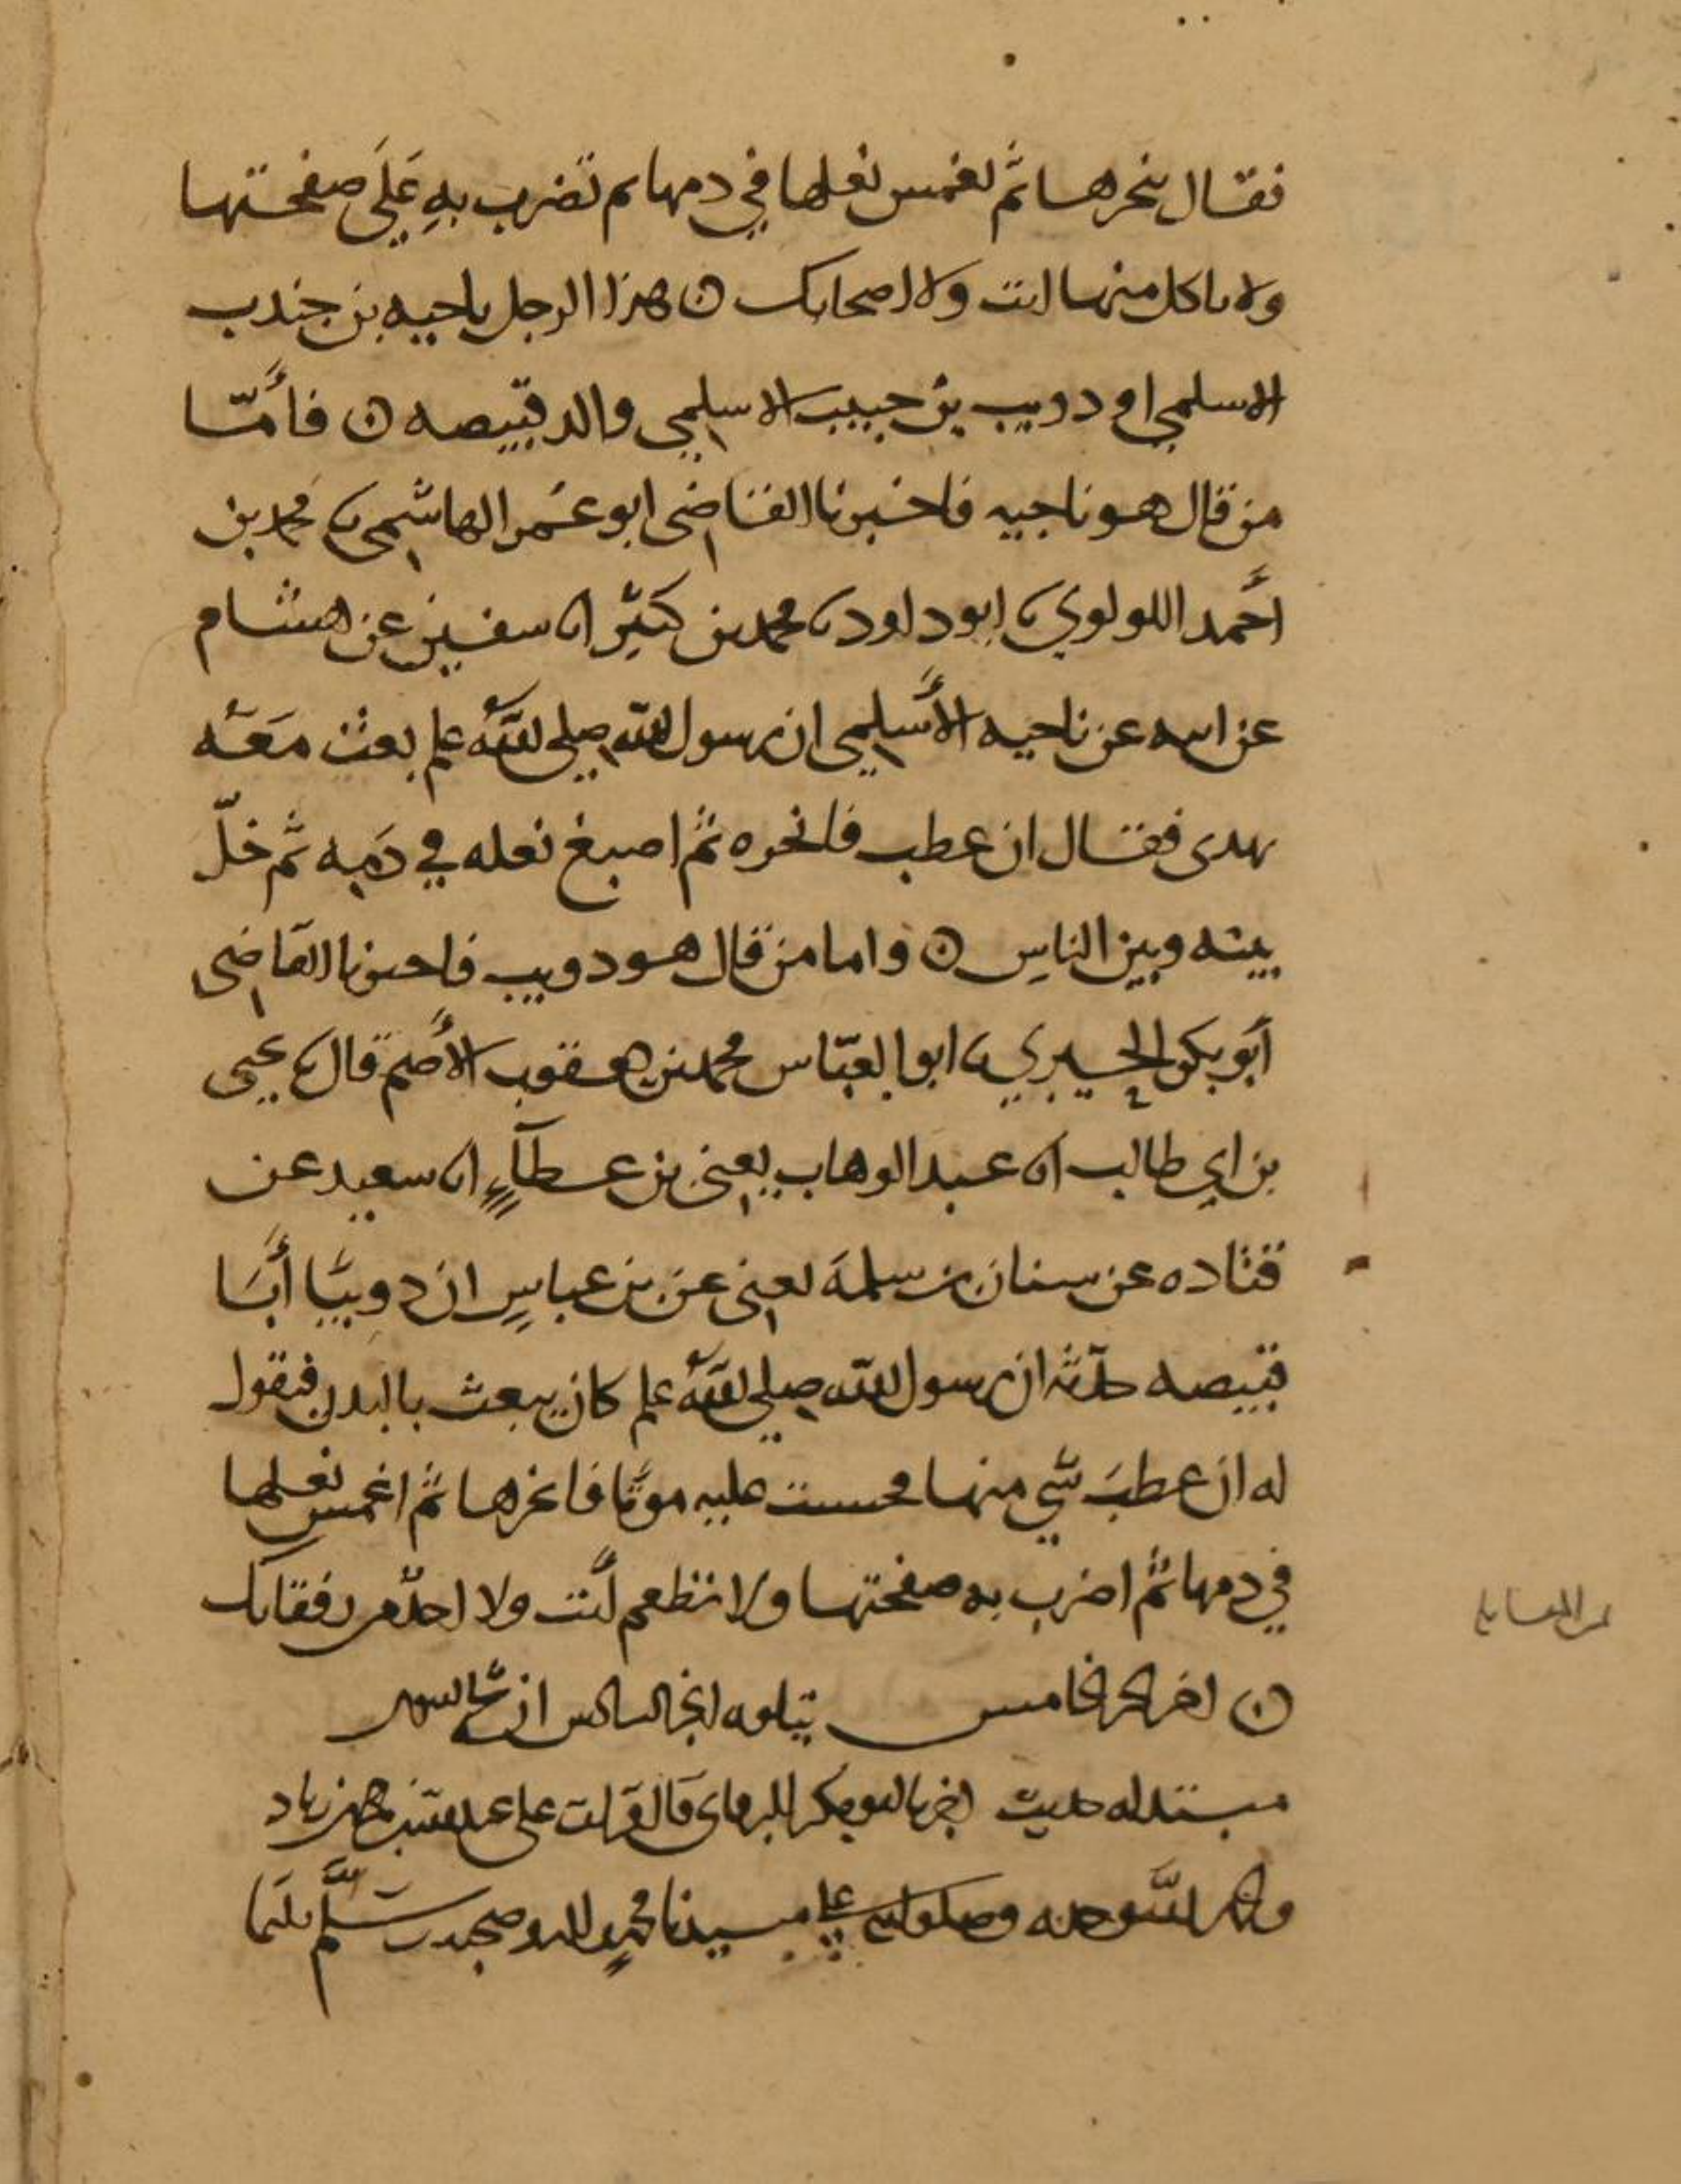 فقال ينحرها ثم تغمس نعلها في دمها ثم تضرب به على صفحتها
ولا ياكل منها انت ولا اصحابك ن هذا الرجل ناجيه بن جندب
الاسلمي او دويب بن حبيب الاسلمي والد قبيصه ن فأمّا
من قال هو ناجيه فاخبرنا القاضى ابو عمر الهاشمي نا محمد بن
أحمد اللولوي نا ابو داود نا محمد بن كثير انا سفين عن هشام
عن ابيه عن ناجيه الأسلمي ان رسول الله صلى الله علم بعث معه
بهدى فقال ان عطب فانحره ثم اصبغ نعله في دمه ثم خلّ
بينه وبين الناس ن واما من قال هو دويب فاخبرنا القاضى
أبو بكر الحيري نا ابو العبّاس محمد بن يعقوب الأصم قال نا يحيى
بن ابي طالب انا عبد الوهاب يعنى بن عطآء انا سعيد عن
قتاده عن سنان بن سلمة يعنى عن بن عباس ان دويبًا أبا
قبيصه حدثه ان رسول الله صلى الله علم كان يبعث بالبدن فيقول
له ان عطب شي منها فحسبت عليه موتًا فانحرها ثم اغمس نعلها
في دمها ثم اضرب به صفحتها ولا تطعم أنت ولا احد من رفقاىك
ن اخر الجز الخامس يتلوه الجز السادس ان شا الله
مبتداه حديث اخبرنا ابو بكر البرقانى قال قرات على عبد الله بن محمد بن زياد
والحمد لله وحده وصلواته على سيدنا محمد واله وصحبه وسلّم